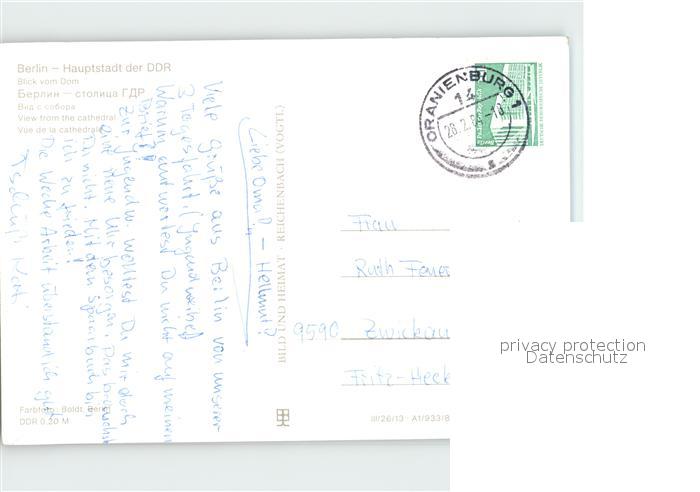 Berlin – Hauptstadt der DDR
Blick vom Dom
Берлин – столица ГДР
Вид с собора
View from the cathedral
Vue de la cathedrale
Liebe Oma! – Hellmut!
Viele Grüße aus Berlin von unserer
3 Tagesfahrt (Jugendweihe)
Warum antwortest Du nicht auf meinen
Brief?
Zur Jugendw. wolltest Du mir doch
eine neue Uhr besorgen. Das brauchst
Du nicht. Mit dem Sparbuch bin
ich zufrieden!
Die Woche Arbeit überstand ich gut
Tschüß
BILD UND HEIMAT · REICHENBACH (VOGTL)
ORANIENBURG 1
14
28.2.8
Frau
Ruth
9590 Zwickau
Fritz-Heck
Farbfoto: Boldt, Berlin
DDR 0,20 M
III/26/13 · A1/933/8
privacy protection
Datenschutz